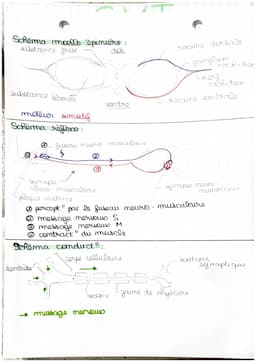 Schéma moelle épinière :
substance grise
dos
racine dorsale
ganglion rachidien
nerf rachidien
substance blanche
ventre
racine ventrale
moteur sensitif
Schéma réflexe :
① fuseau neuro-musculaire
②
③
④
synapse neuro-musculaire
plaque motrice
synapse neuro-neuronique
① percept° par le fuseau neuro-musculaire
② message nerveux S
③ message nerveux M
④ contract° du muscle
Schéma conduct° :
corps cellulaire
dendrite
boutons synaptiques
axone
gaine de myéline
→ message nerveux